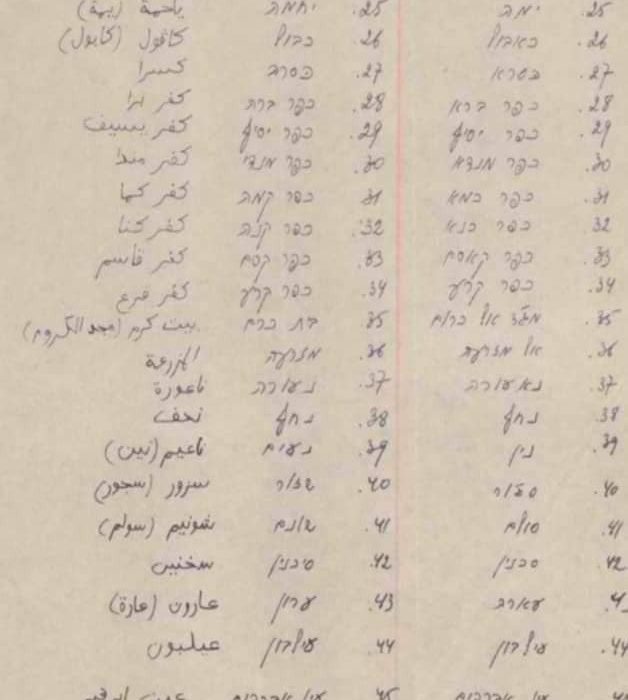 25. ימה 25. יחמה ياحمة (يمة)
26. כאבול 26. כבול كافول (كابول)
27. כסרא 27. כסרה كسرا
28. כפר ברא 28. כפר ברה كفر برا
29. כפר יסיף 29. כפר יסיף كفر ياسيف
30. כפר מנדא 30. כפר מנדי كفر مندا
31. כפר כמא 31. כפר קמה كفر كما
32 כפר כנא 32. כפר קנה كفر كنا
33. כפר קאסם 33. כפר קסם كفر قاسم
34. כפר קרע 34. כפר קרע كفر قرع
35. מג'ד אל כרום 35 בת כרם بيت كرم (مجد الكروم)
36. אל מזרעה 36. מזרעה المزرعة
37. נאעורה 37. נעורה ناعورة
38 נחף 38. נחף نحف
39. נין 39. נעים ناعيم (نين)
40. סג'ור 40. שזור سزور (سجور)
41. סולם 41. שונם شونيم (سولم)
42. סכנין 42. סיכנין سخنين
43. עארה 43. ערון عارون (عارة)
44. עילבון 44. עילבון عيلبون